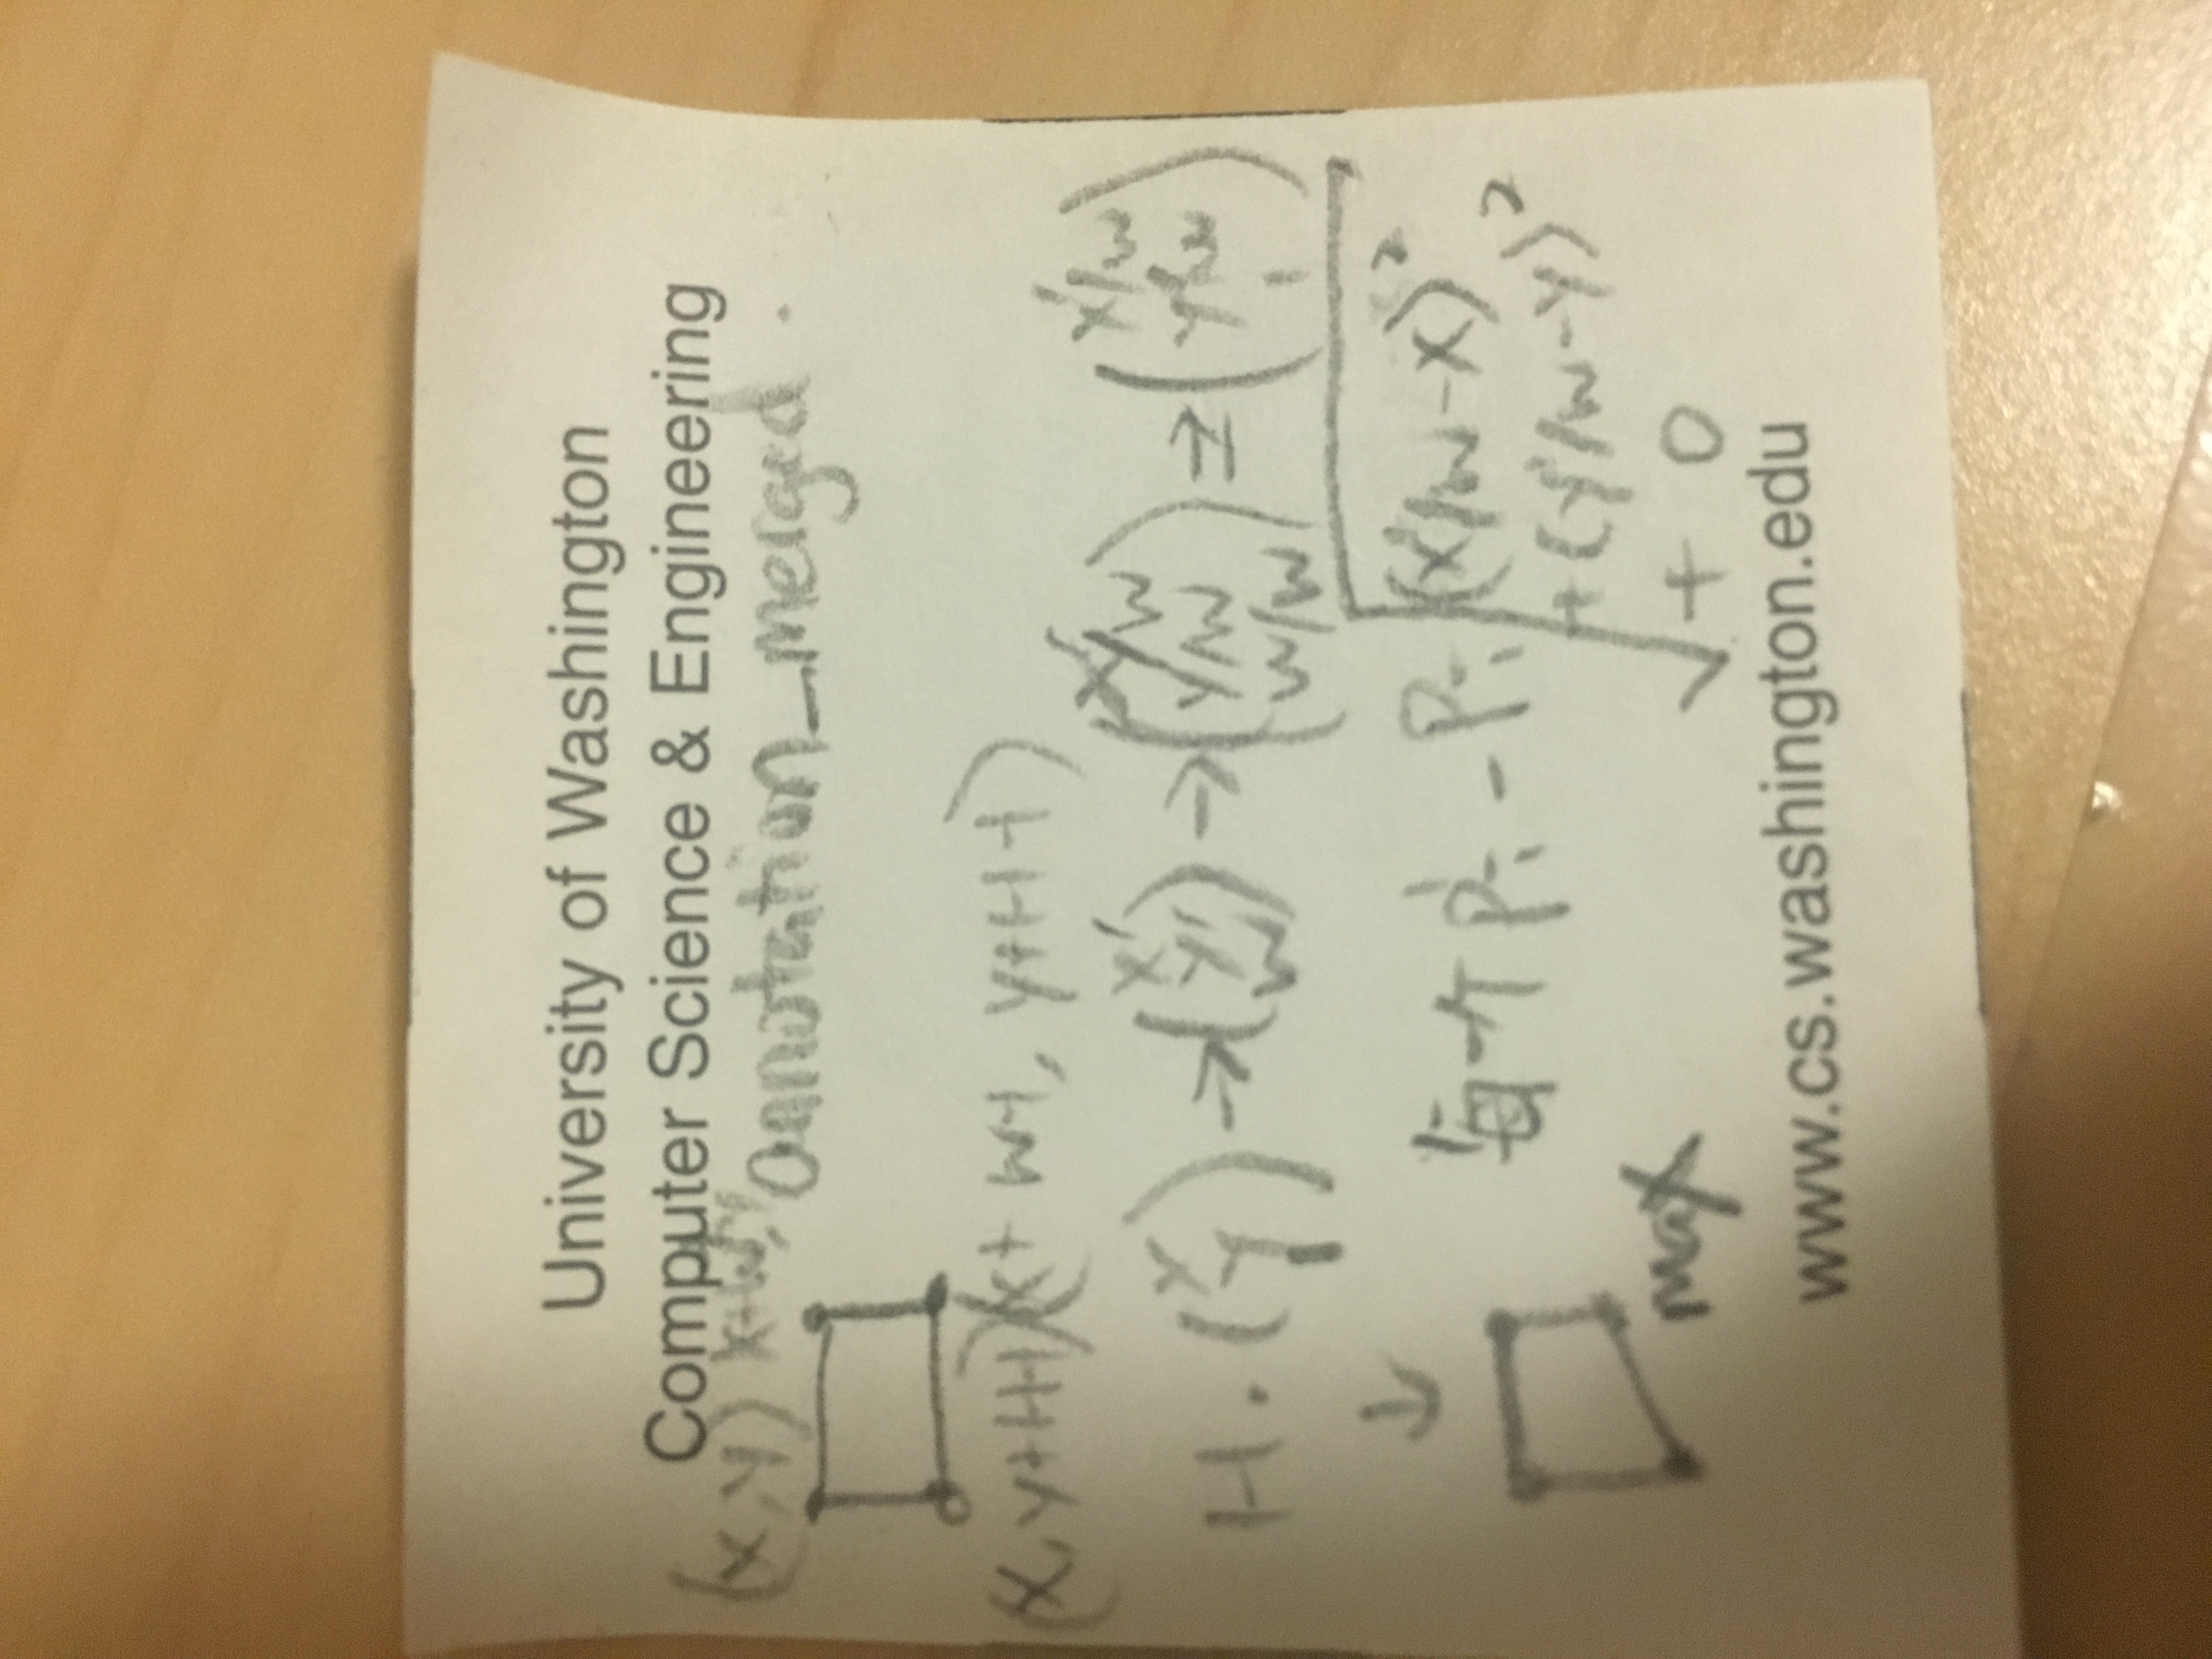 University of Washington
Computer Science & Engineering
(x, y) x+w-1,
annotation_merged.
(x, y+H-1) (x+w-1, y+H-1)
H · (x y 1) → (x' y' w) → (x'/w y'/w w/w) ⇒ (x'/w y'/w 1)
↓
每一个 P'i - Pi √(x'/w-x)²
+(y'/w-y)²
+ 0
max
www.cs.washington.edu